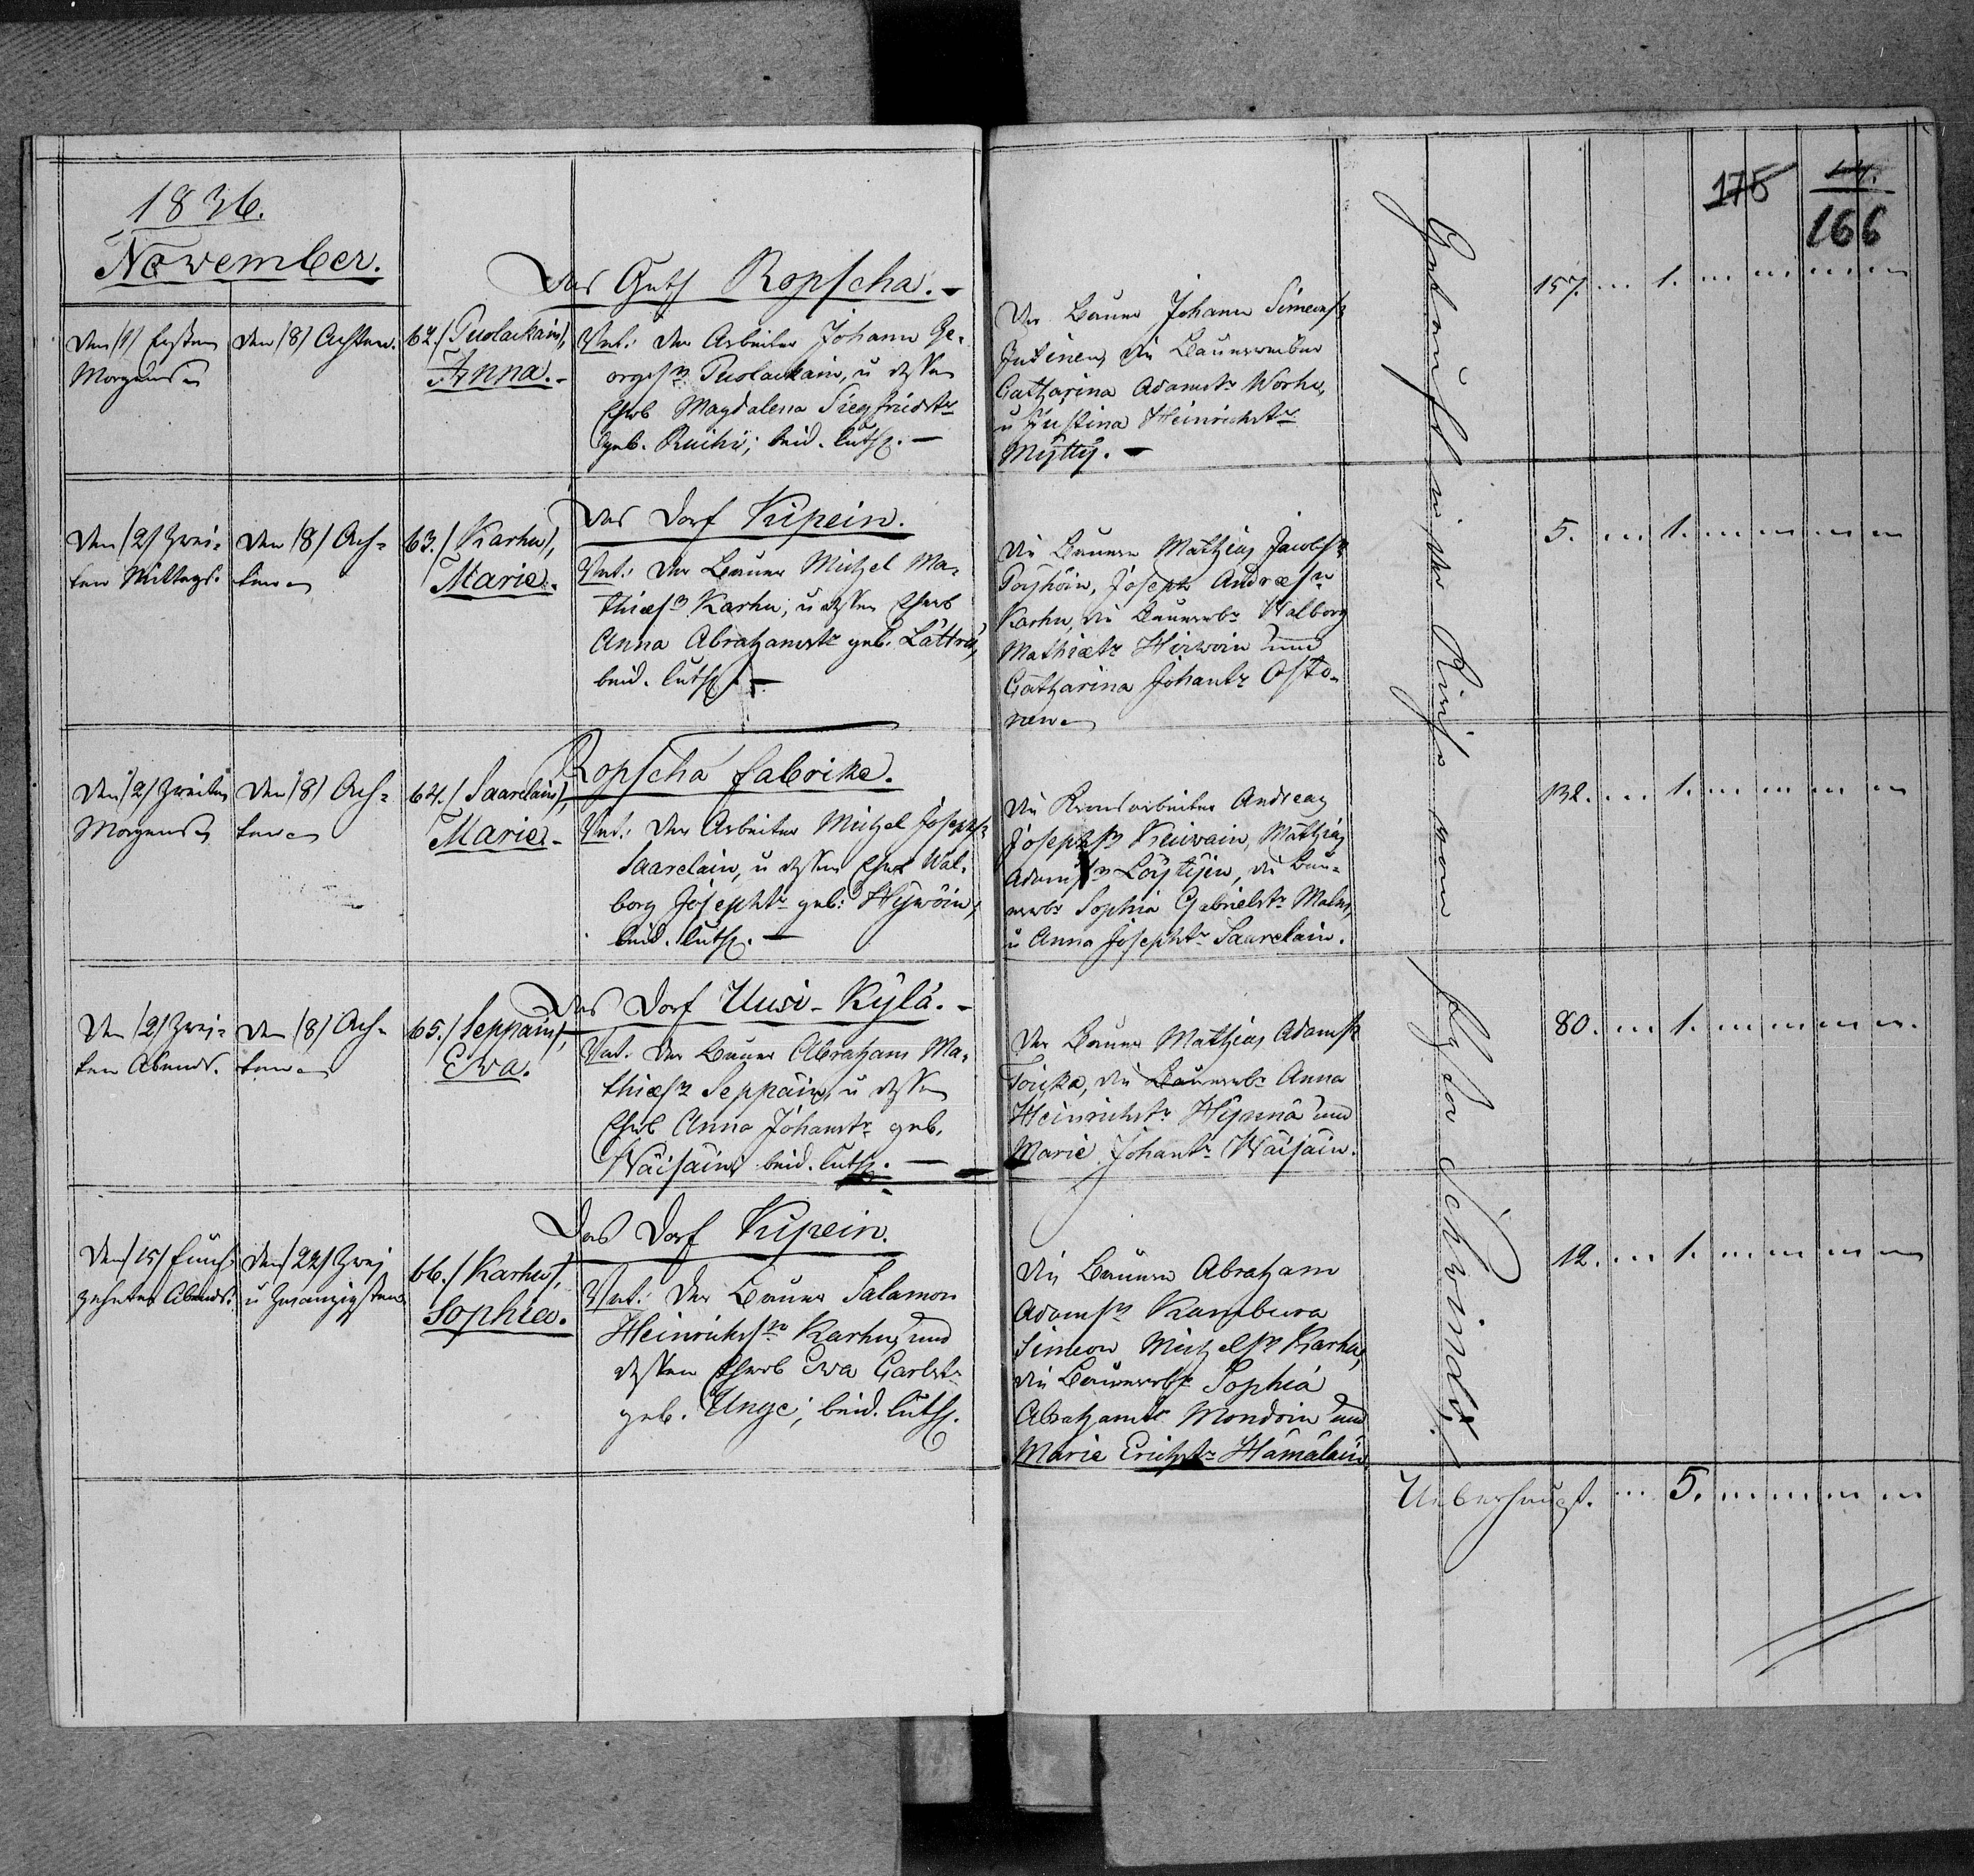 1836.
November.
175
166
Das Guth Ropscha.
Den /1/ Ersten
Morgens
Den /8/ Achten.
62./Puolackain/,
Anna.
Vat: Der Arbeiter Johann Ge-
orgsn Puolackain, u dessen
Ehwb Magdalena Siegfriedstr
geb. Ruihi; beid. luth.
Der Bauer Johann Simeonsn
Jutinen, die Bauernweiber
Catharina Adamstr Worho,
u Justina Heinrichstr
Mÿttÿ.
157. ... 1.
Das Dorf Kipein.
Den /2/ Zwei-
ten Mittags.
Den /8/ Ach-
ten
63./Karhu/,
Marie.
Vat: Der Bauer Michel Ma-
thiæsn Karhu, u dessen Ehwb
Anna Abrahamstr geb. Lätträ,
beid. luth.
Die Bauern Mathias Jacobsn
Pöÿhöin, Joseph Andreæsn
Karhu, die Bauerwbr Walborg
Mathiætr Hirwoin und
Catharina Johantr Asto-
nen
5. ... 1.
Ropscha fabrike.
Den /2/ Zweiten
Morgens
Den /8/ Ach-
ten
64./Saarelain/,
Marie.
Vat: Der Arbeiter Michel Josephsn
Saarelain, u dessen Ehwb Wal-
borg Josephtr geb: Hÿwöin,
beid. luth.
Die Kronsarbeiter Andreas
Josephsn Kuiwain, Mathias
Adamsn Löÿtÿin, die Bau-
erwbr Sophia Gabrielstr Malm,
u Anna Josephtr Saarelain.
132. ... 1.
Das Dorf Uusi-Kÿlä.
Den /2/ Zwei-
ten Abends.
Den /8/ Ach-
ten
65./Seppäin/,
Ewa.
Vat. Der Bauer Abraham Ma-
thiæsn Seppäin, u dessen
Ehwb Anna Johanstr geb.
Wäisäin, beid. luth.
Der Bauer Mathias Adamsn
Touka, die Bauerwbr Anna
Heinrichstr Hÿmmä und
Marie Johantr Wäisäin.
80. ... 1.
Das Dorf Kipein.
Den /15/ Funf-
zehnten Abends.
Den /22/ Zwei
u Zwanzigsten.
66./Karhu/,
Sophia.
Vat: Der Bauer Salamon
Heinrichsn Karhu, und
dessen Ehwb Ewa Carlstr
geb. Unge; beid. luth.
Die Bauern Abraham
Adamsn Kambura
Simeon Michelsn Karhu,
die Bauerwbr Sophia
Abrahamtr Mondoin und
Marie Erichstr Hämäläin.
12. ... 1.
Getauft in der Kirche vom Pastor Schwindt.
Ueberhaupt. ... 5.